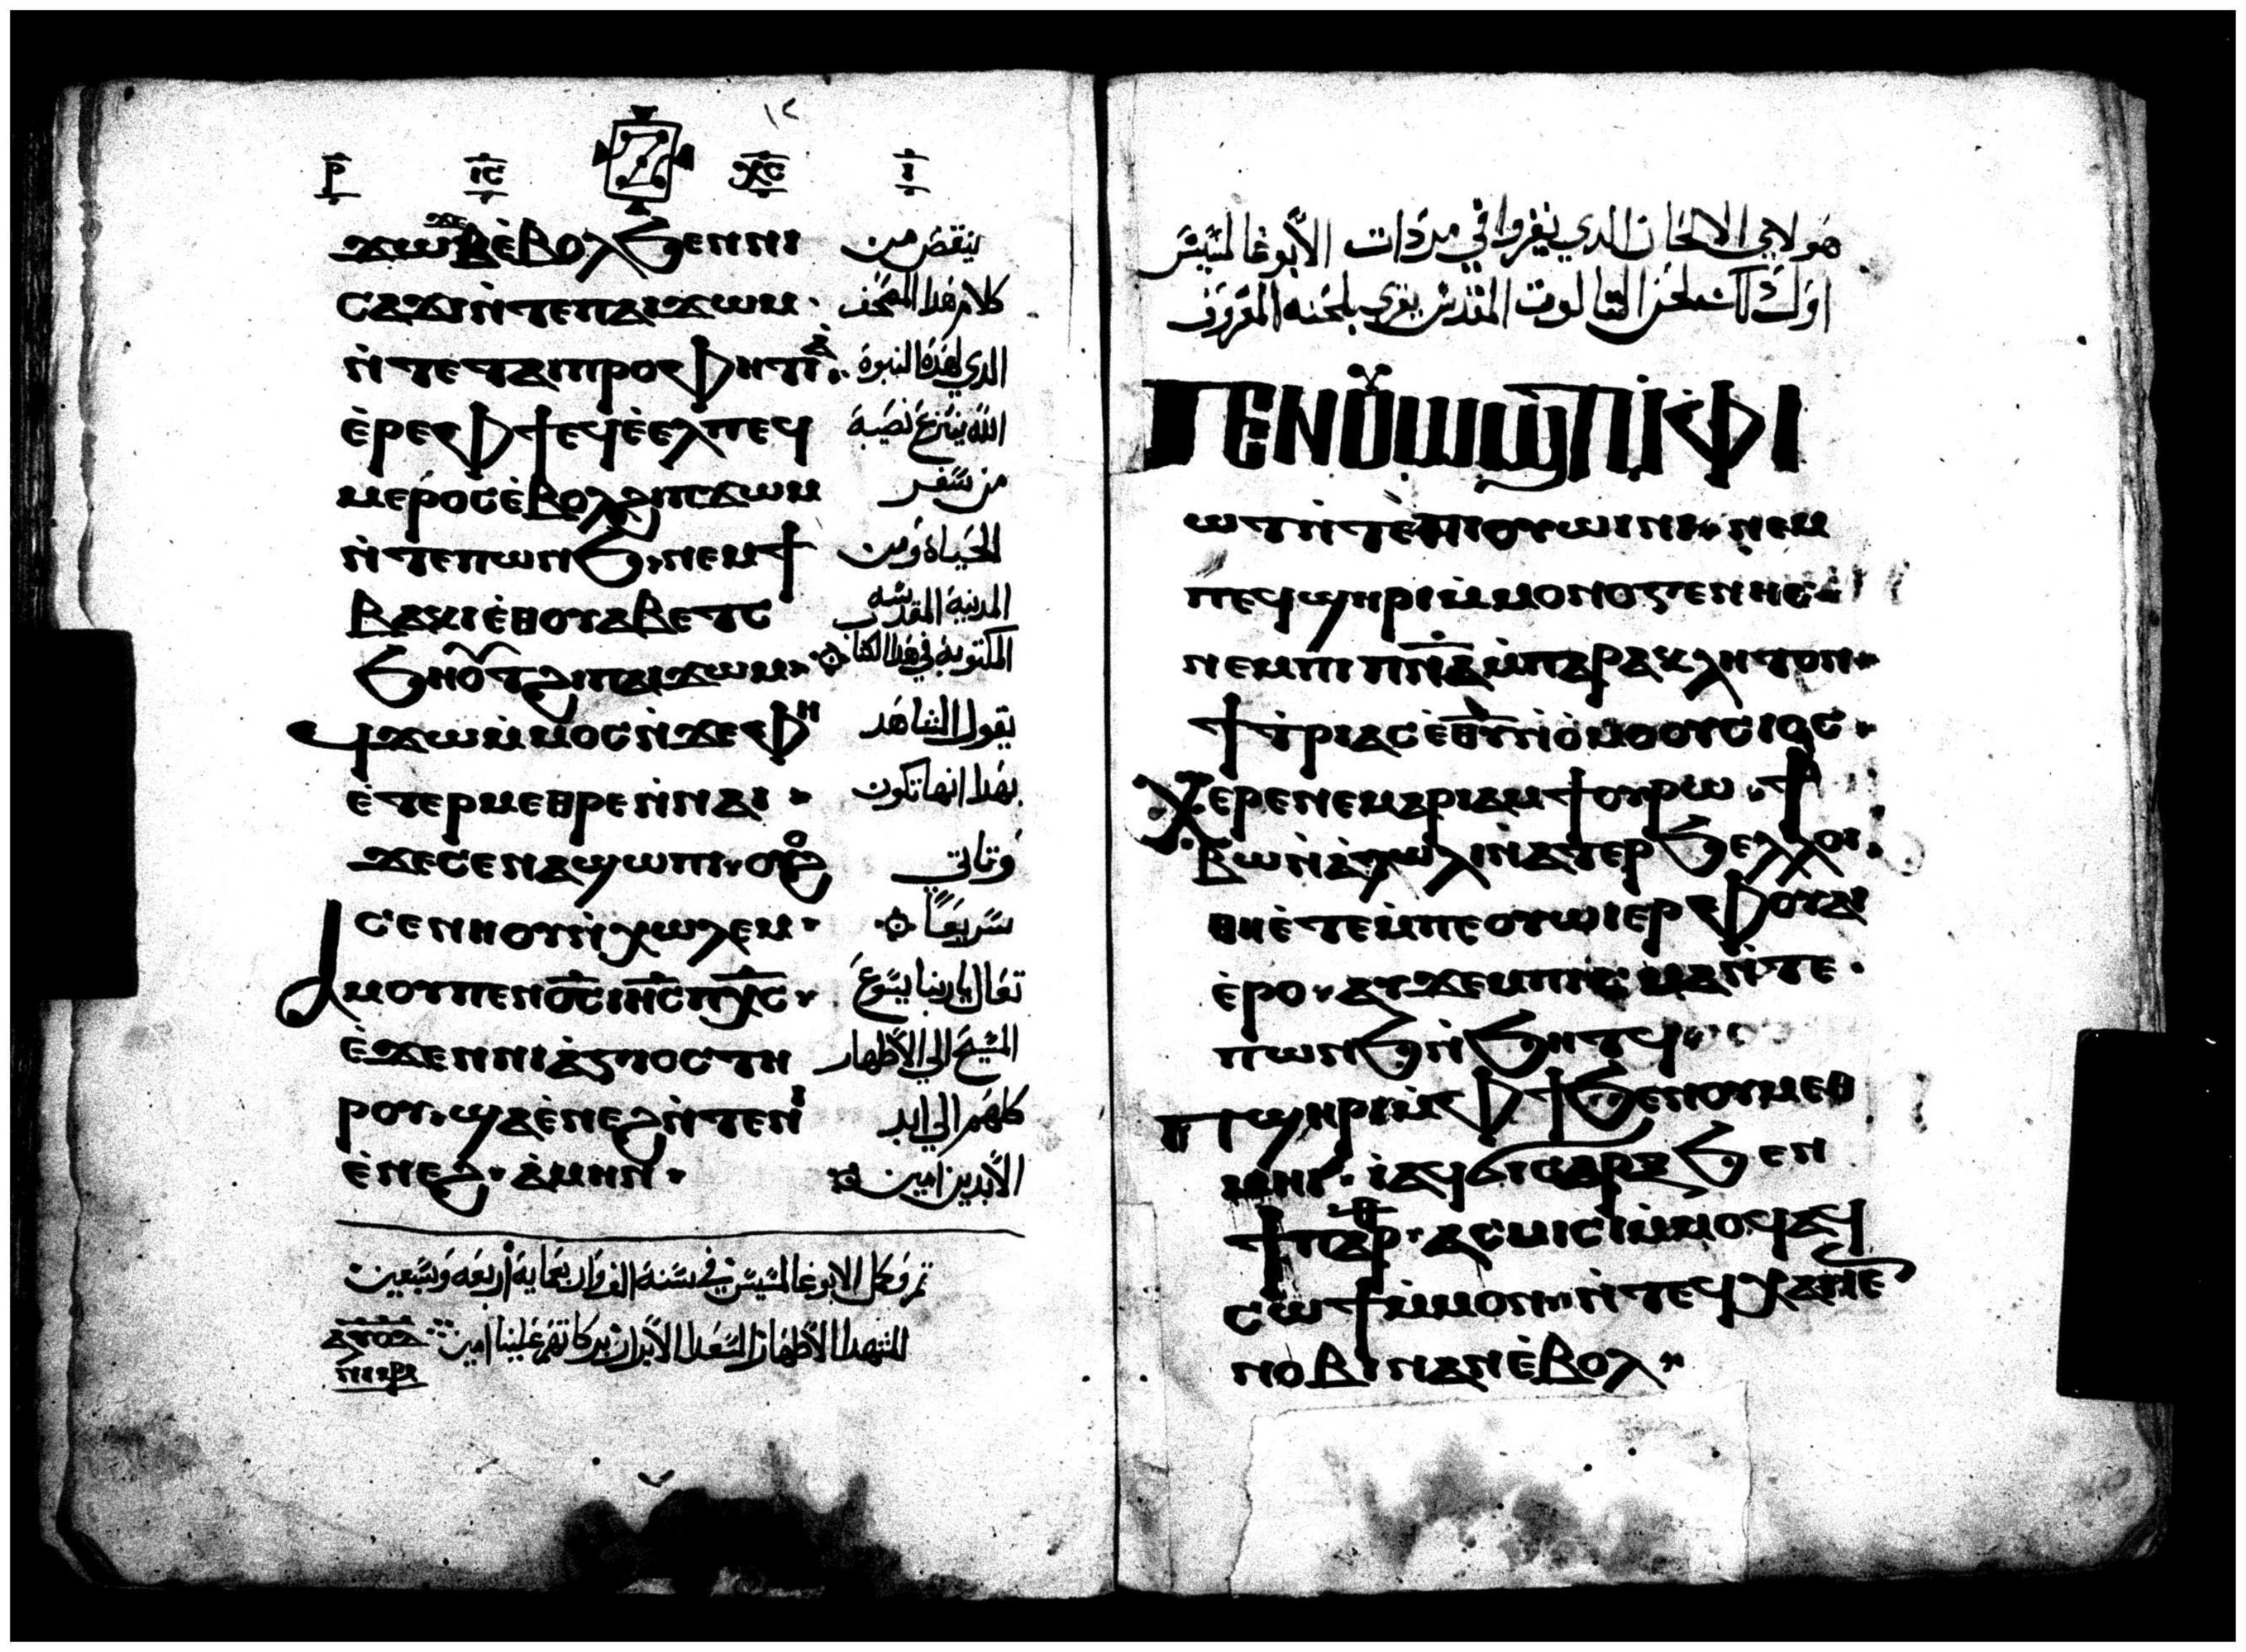 ١٢
ⲣ ⲓⲥ ⲭⲥ ⲓ
ϫⲱϫⲉⲃ ⲉ̀ⲃⲟⲗϧⲉⲛⲛⲓ ينقض من
ⲥⲁϫⲓⲛ̀ⲧⲉⲡⲁⲓϫⲱⲙ · كلام هدا المصحف
ⲛ̀ⲧⲉⲧⲁⲓⲡⲣⲟⲫⲏⲧⲓⲁ الدي لهده النبوة
ⲉ̀ⲣⲉⲫϯⲉϥⲉ̀ⲉⲗⲡⲉϥ الله ينزع نصيبة
ⲙⲉⲣⲟⲥⲉ̀ⲃⲟⲗϩⲓⲡϫⲱⲙ من سفر
ⲛ̀ⲧⲉⲡⲱⲛϧ ⲛⲉⲙϯ الحياة ومن
ⲃⲁⲕⲓⲉ̀ⲑⲟⲩⲁⲃⲉⲧⲥ المدينة المقدسه
ϧⲏⲟⲩⲧϩⲓⲡⲁⲓϫⲱⲙ المكتوبة في هدا الكتاب
ϥϫⲱⲙ̀ⲙⲟⲥⲛ̀ϫⲉⲫⲏ يقول الشاهد
ⲉ̀ⲧⲉⲣⲙⲉⲑⲣⲉⲛ̀ⲛⲁⲓ بهدا انها تكون
ϫⲉⲥⲉⲛⲁϣⲱⲡⲓ ⲟⲩⲟϩ وتاتي
ⲥⲉⲛⲏⲟⲩⲛ̀ⲭⲱⲗⲉⲙ · سريعاً
ⲁⲙⲟⲩⲡⲉⲛⲟ̅ⲥ̅ⲓⲏ̅ⲥ̅ⲡⲭ̅ⲥ̅ تعال يا ربنا يسوع
ⲉ̀ϫⲉⲛⲛⲓⲁ̀ⲅⲓⲟⲥⲧⲏ المسيح الي الاطهار
ⲣⲟⲩ ϣⲁⲉ̀ⲛⲉϩⲛ̀ⲧⲉⲛⲓ كلهم الي ابد
ⲉ̀ⲛⲉϩ · ⲁ̀ⲙⲏⲛ · الأبدين امين
تم وكمل الابوغالمسيس في سنة الف واربعماية أربعه وسبعين
للشهدا الأطهار السعدا الأبرار بركاتهم علينا امين
هولاي الالحان الدي يقروا في مردات الأبوغالمسيس
ⲅⲉⲛⲟⲩⲱϣⲧⲙ̀ⲫⲓ
ⲱⲧⲛ̀ⲧⲉⲡⲓⲟⲩⲱⲓⲛⲓ ⲛⲉⲙ
ⲡⲉϥϣⲏⲣⲓⲙ̀ⲙⲟⲛⲟⲅⲉⲛⲏⲥ
ⲛⲉⲙⲡⲓⲡⲛ̅ⲁ̅ⲙ̀ⲡⲁⲣⲁⲕⲗⲏⲧⲟⲛ
ϯⲧ̀ⲣⲓⲁⲥⲉ̀ⲑ̅ⲩ̅ⲛ̀ⲟ̀ⲙⲟⲟⲩⲥⲓⲟⲥ
ⲭⲉⲣⲉⲛⲉⲙⲁⲣⲓⲁⲙϯⲟⲩⲣⲱ ϯ
ⲃⲱⲛ̀ⲁ̀ⲗⲟⲗⲓⲛ̀ⲁⲧⲉⲣϧⲉⲗⲗⲟ
ⲑⲏⲉ̀ⲧⲉⲙ̀ⲡⲉⲟⲩⲱⲓⲉⲣⲫⲟⲩⲱⲓ
ⲉ̀ⲣⲟ ⲁⲩϫⲉⲙⲡⲓⲥⲙⲁⲛ̀ⲧⲉ
ⲡⲱⲛϧⲛ̀ϧⲏⲧϥ
ⲡϣⲏⲣⲓⲙ̀ⲫϯϧⲉⲛⲟⲩⲙⲉⲑ
ⲙⲏⲓ ⲁ̀ϥϭⲓⲥⲁⲣⲝϧⲉⲛ
ϯⲡⲁⲣⲑ · ⲁⲥⲙⲓⲥⲓⲙ̀ⲙⲟϥⲁϥ
ⲥⲱϯⲙ̀ⲙⲟⲛ ⲛ̀ⲧⲉϥⲭⲁⲛⲉ
ⲛⲟⲃⲓⲛⲁⲛⲉ̀ⲃⲟⲗ